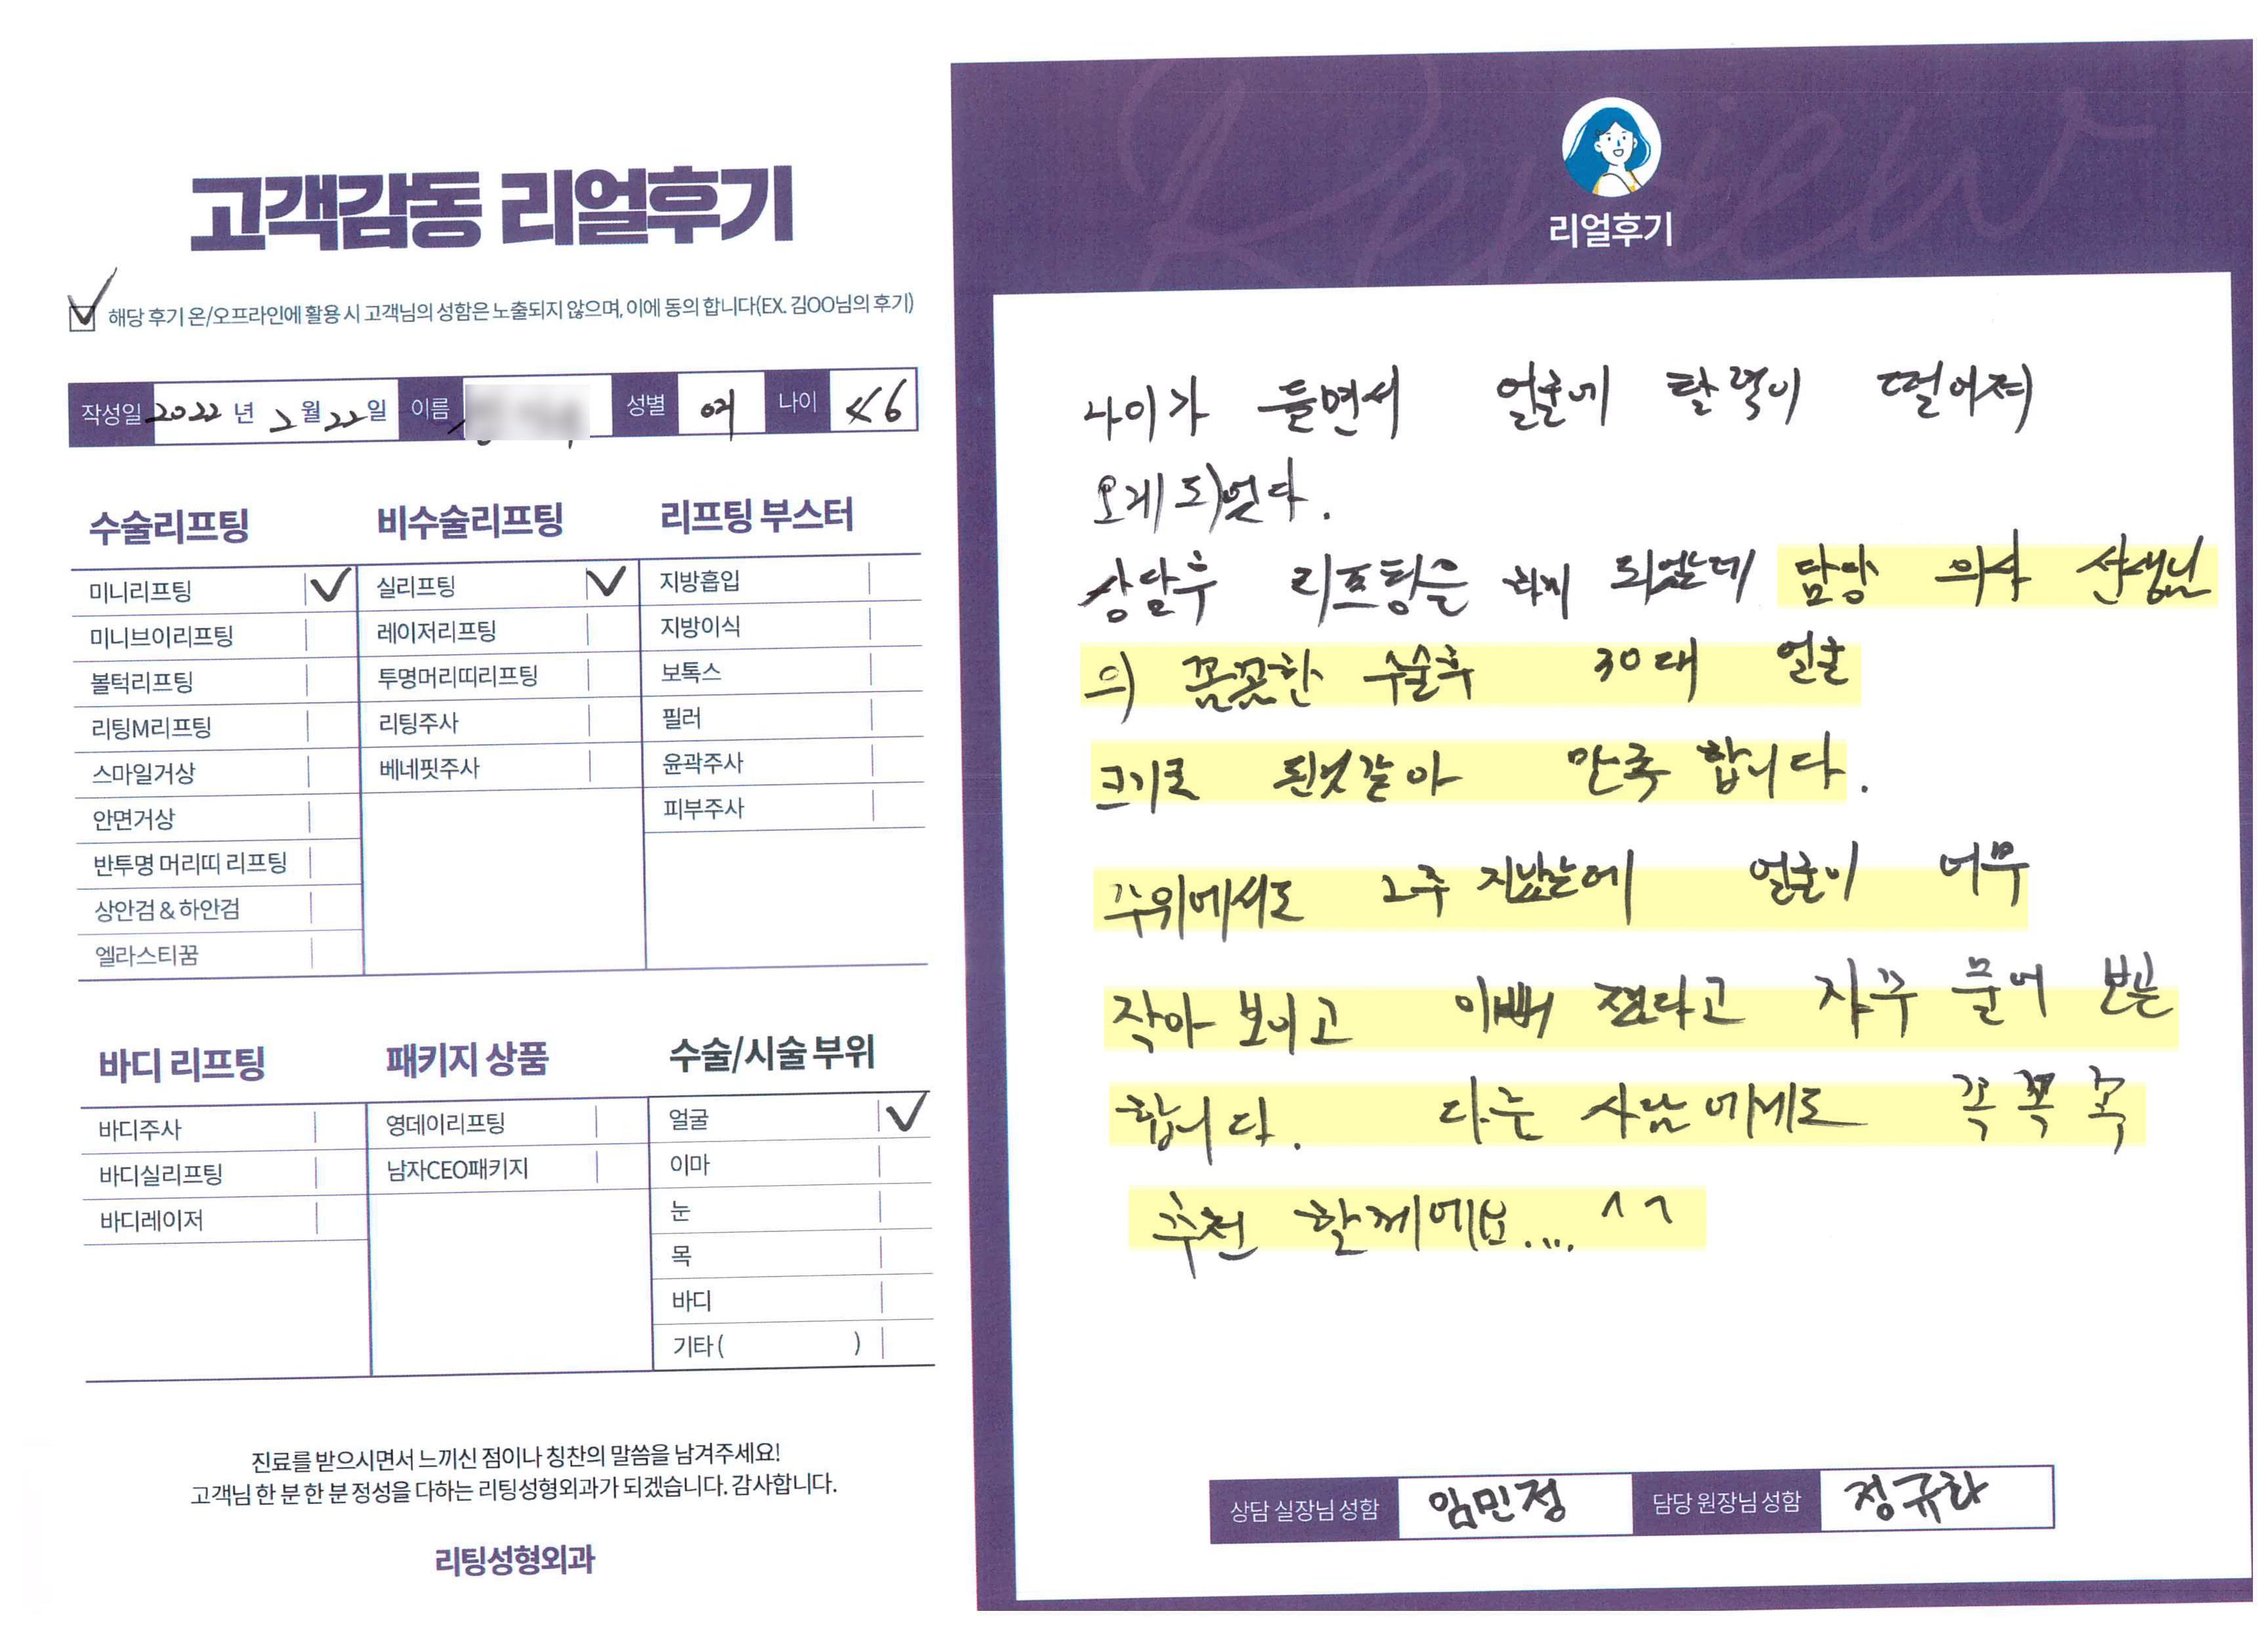 고객감동 리얼후기
해당 후기 온/오프라인에 활용 시 고객님의 성함은 노출되지 않으며, 이에 동의 합니다(EX. 김OO님의 후기)
작성일 2022 년 2 월 22 일 이름 성별 여 나이
수술리프팅
미니리프팅
미니브이리프팅
볼턱리프팅
리팅M리프팅
스마일거상
안면거상
반투명 머리띠 리프팅
상안검 & 하안검
엘라스티꿈
비수술리프팅
실리프팅
레이저리프팅
투명머리띠리프팅
리팅주사
베네핏주사
리프팅 부스터
지방흡입
지방이식
보톡스
필러
윤곽주사
피부주사
바디 리프팅
바디주사
바디실리프팅
바디레이저
패키지 상품
영데이리프팅
남자CEO패키지
수술/시술 부위
얼굴
이마
눈
목
바디
기타 ( )
진료를 받으시면서 느끼신 점이나 칭찬의 말씀을 남겨주세요!
고객님 한 분 한 분 정성을 다하는 리팅성형외과가 되겠습니다. 감사합니다.
리팅성형외과
Review
리얼후기
나이가 들면서 얼굴에 탄력이 떨어져
오게되었다.
상담후 리프팅을 하게 되었는데 담당 의사 선생님
의 꼼꼼한 수술후 30대 얼굴
크기로 된것같아 만족 합니다.
주위에서도 2주 지났는데 얼굴이 너무
작아 보이고 이뻐 졌다고 자꾸 물어 보곤
합니다. 다른 사람에게도 꼭 꼭 꼭
추천 할께에요.... ^^
상담 실장님 성함 임민정 담당 원장님 성함 정규화